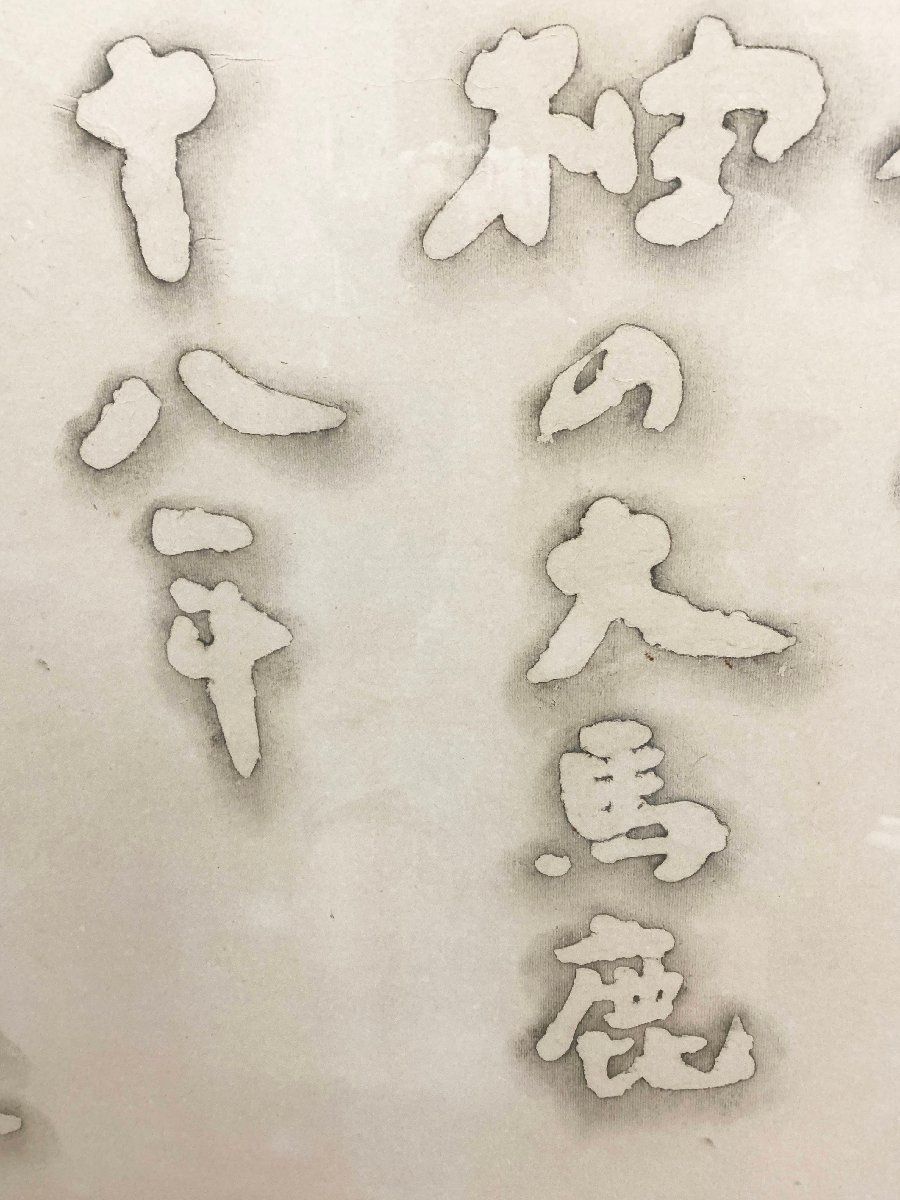 の大馬鹿
十八年